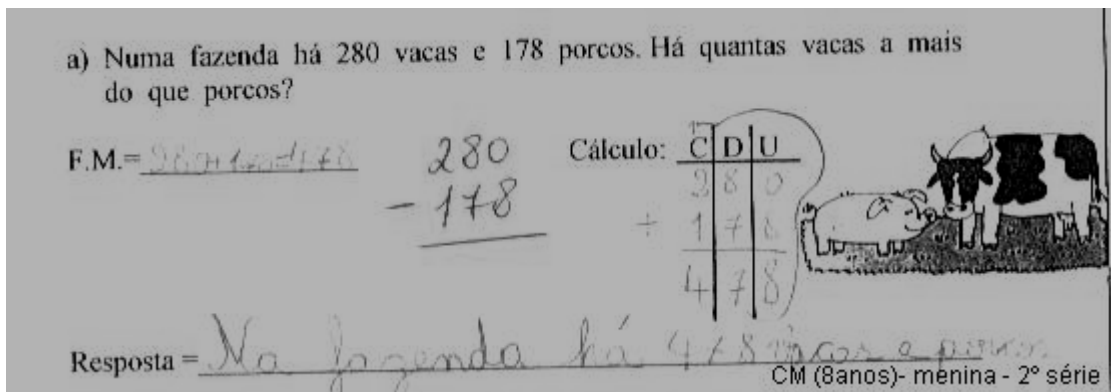 a) Numa fazenda há 280 vacas e 178 porcos. Há quantas vacas a mais
do que porcos?
F.M.=
280
- 178
Cálculo: C D U
2 8 0
+ 1 7 8
4 7 8
Resposta = Na fazenda há 478 vacas e porcos
CM (8anos)- menina - 2º série